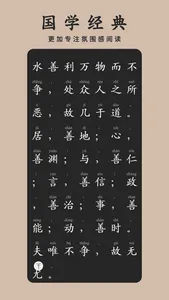 国学经典
更加专注氛围感阅读
水善利万物而不
争，处众人之所
恶，故几于道。
居，善地；心，
善渊；与，善仁
；言，善信；政
，善治；事，善
能；动，善时。
夫唯不争，故无
尤。